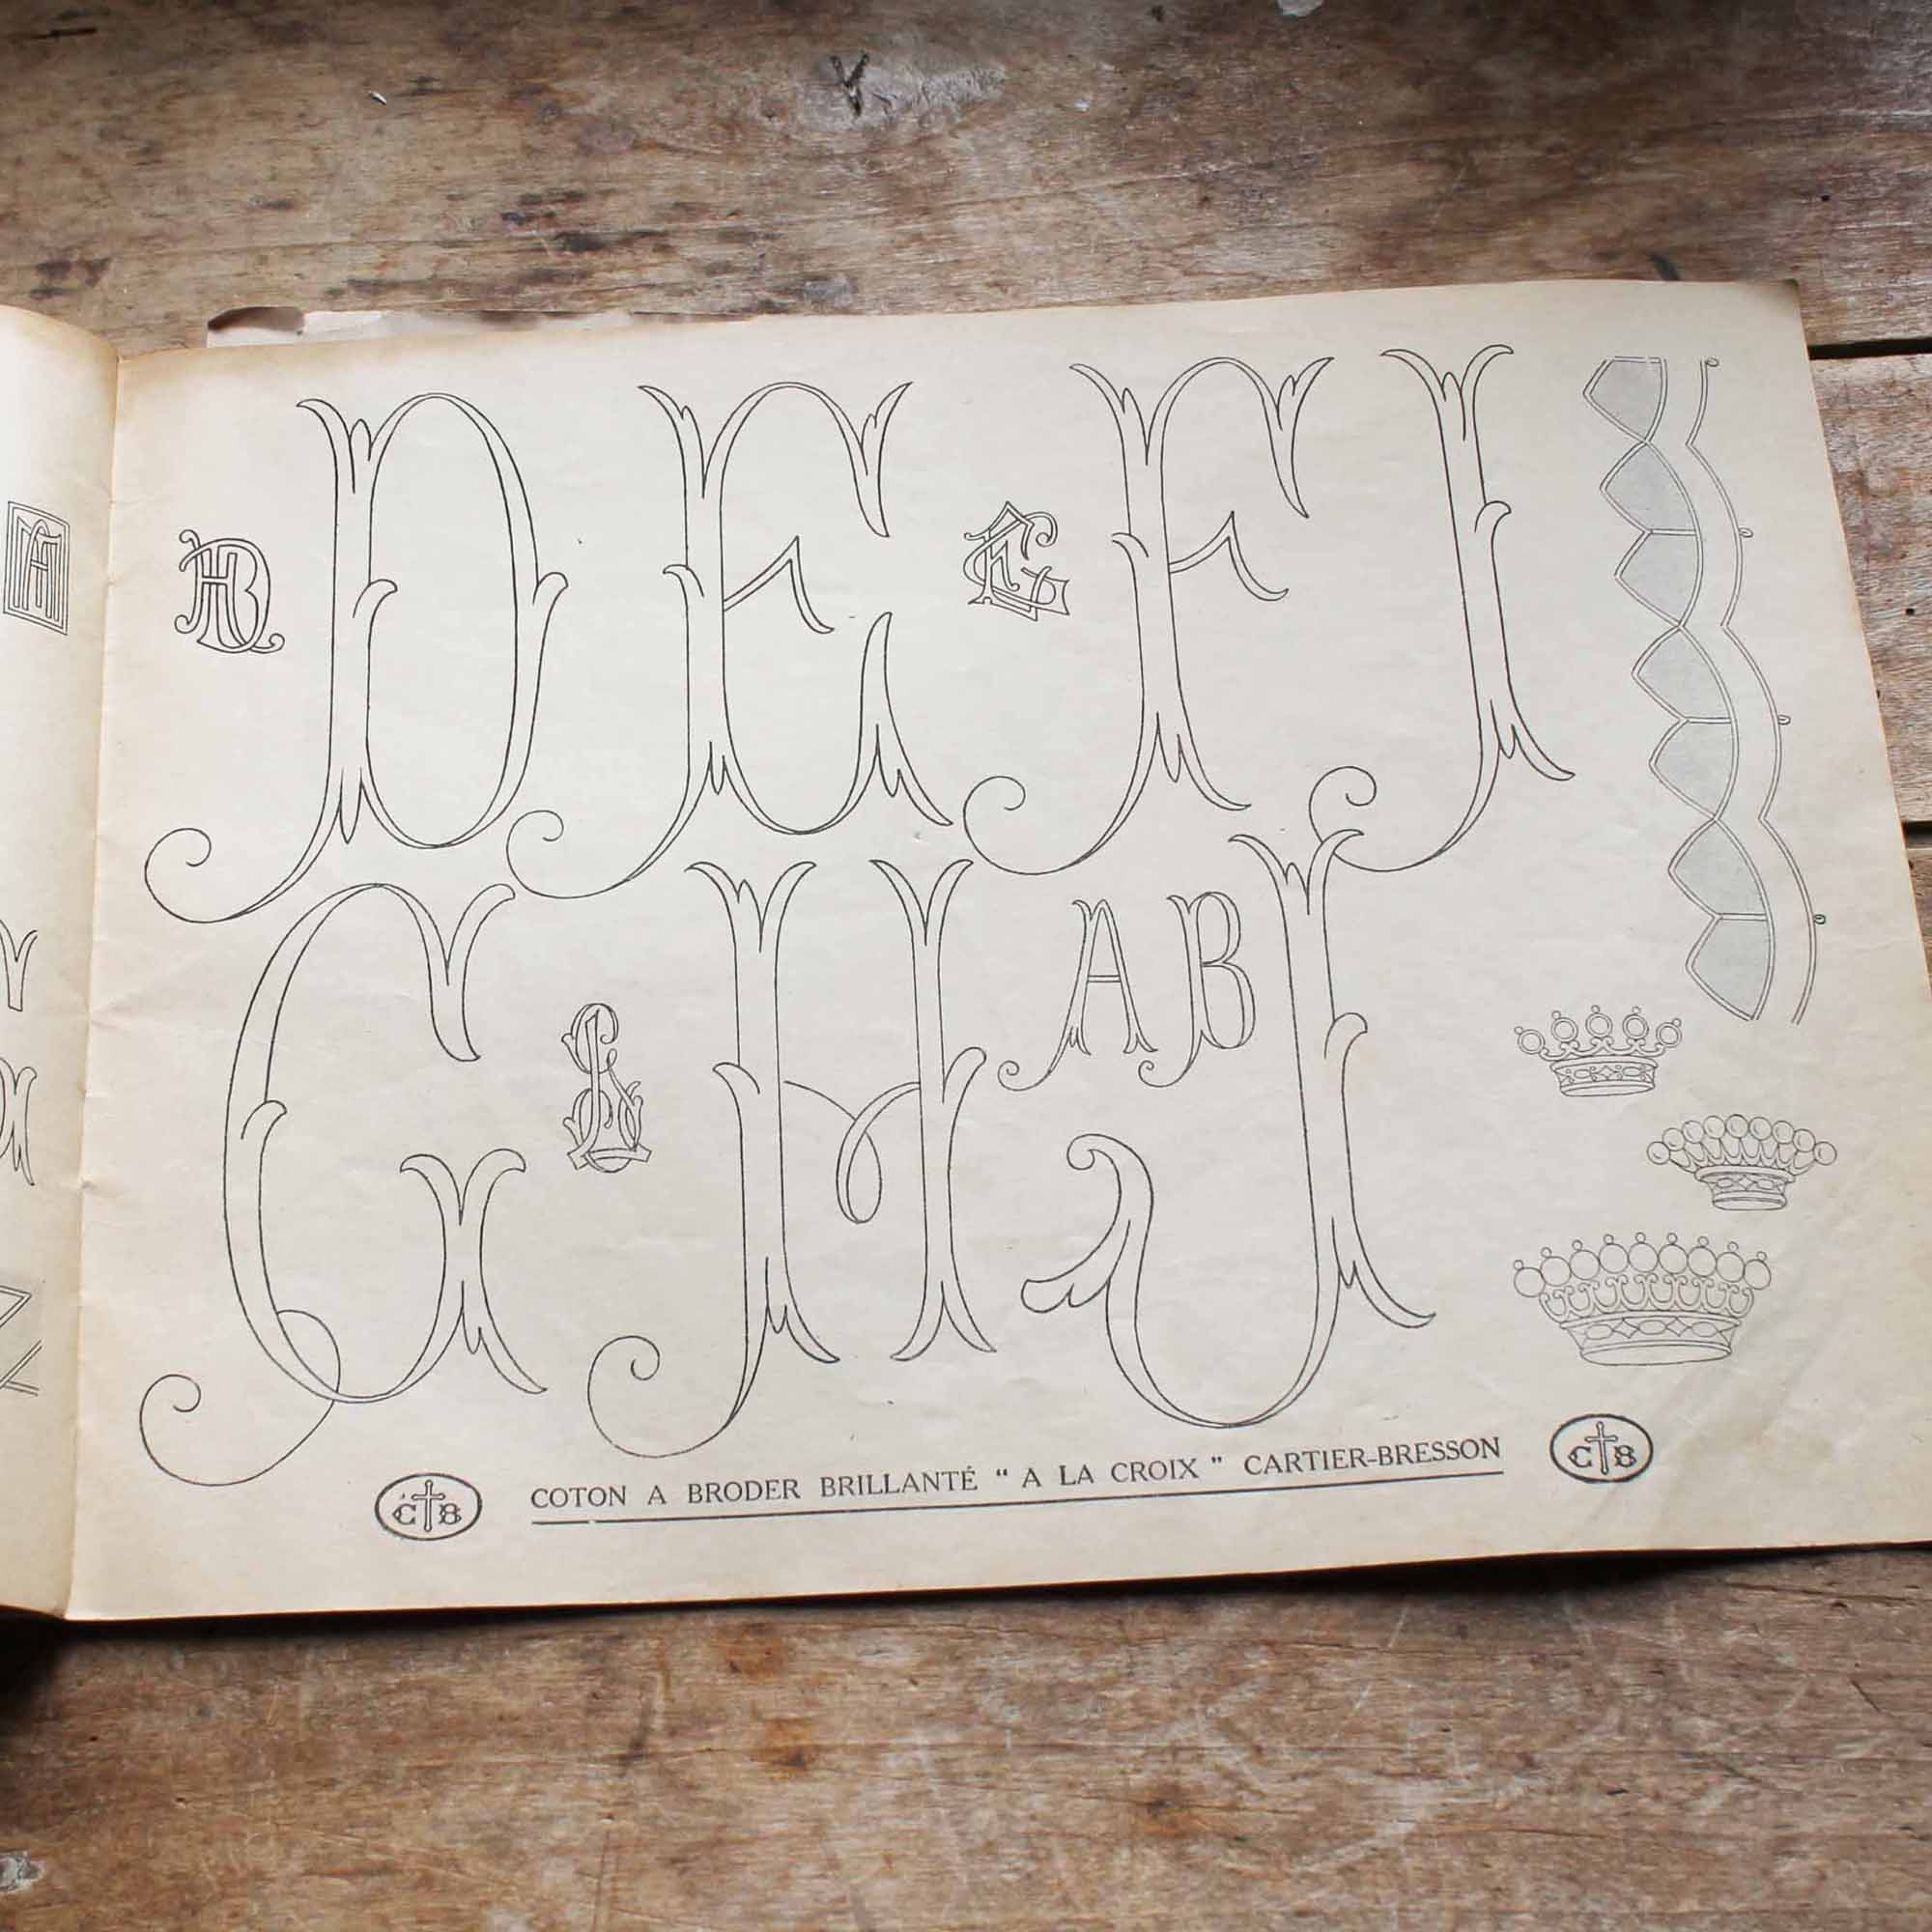 D E F I
G H A B J
C B COTON A BRODER BRILLANTÉ “ A LA CROIX ” CARTIER-BRESSON C B